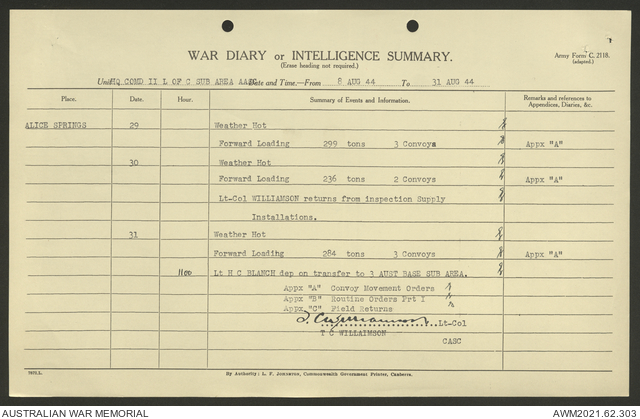 WAR DIARY or INTELLIGENCE SUMMARY.
(Erase heading not required.)
Army Form C. 2118.
(adapted.)
Unit HQ COMD II L OF C SUB AREA AASC Date and Time.—From 8 AUG 44 To 31 AUG 44
Place. Date. Hour. Summary of Events and Information. Remarks and references to Appendices, Diaries, &c.
ALICE SPRINGS 29 Weather Hot
Forward Loading 299 tons 3 Convoys Appx "A"
30 Weather Hot
Forward Loading 236 tons 2 Convoys Appx "A"
Lt-Col WILLIAMSON returns from inspection Supply
Installations.
31 Weather Hot
Forward Loading 284 tons 3 Convoys Appx "A"
1100 Lt H C BLANCH dep on transfer to 3 AUST BASE SUB AREA.
Appx "A" Convoy Movement Orders
Appx "B" Routine Orders Prt I
Appx "C" Field Returns
Lt-Col
T C WILLAIMSON
CASC
By Authority: L. F. Johnston, Commonwealth Government Printer, Canberra.
AUSTRALIAN WAR MEMORIAL AWM2021.62.303